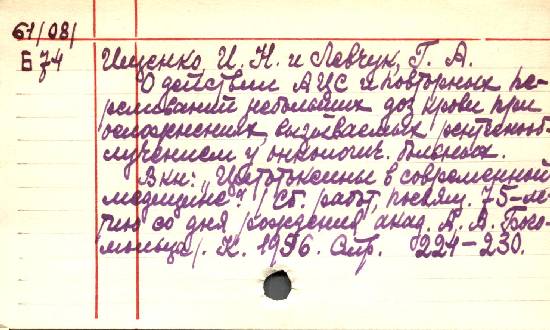 61/08/
Б 74
Ищенко, И. Н. и Левчук, Г. А.
О действии АЦС и повторных пе-
реливаний небольших доз крови при
осложнениях, вызываемых рентгенооб-
лучением у онкологич. больных.
В кн: „Цитотоксины в современной
медицине" / Сб. работ, посвящ. 75-ле-
тию со дня рождения акад. А. А. Бого-
мольца/. К. 1956. Стр. 224-230.